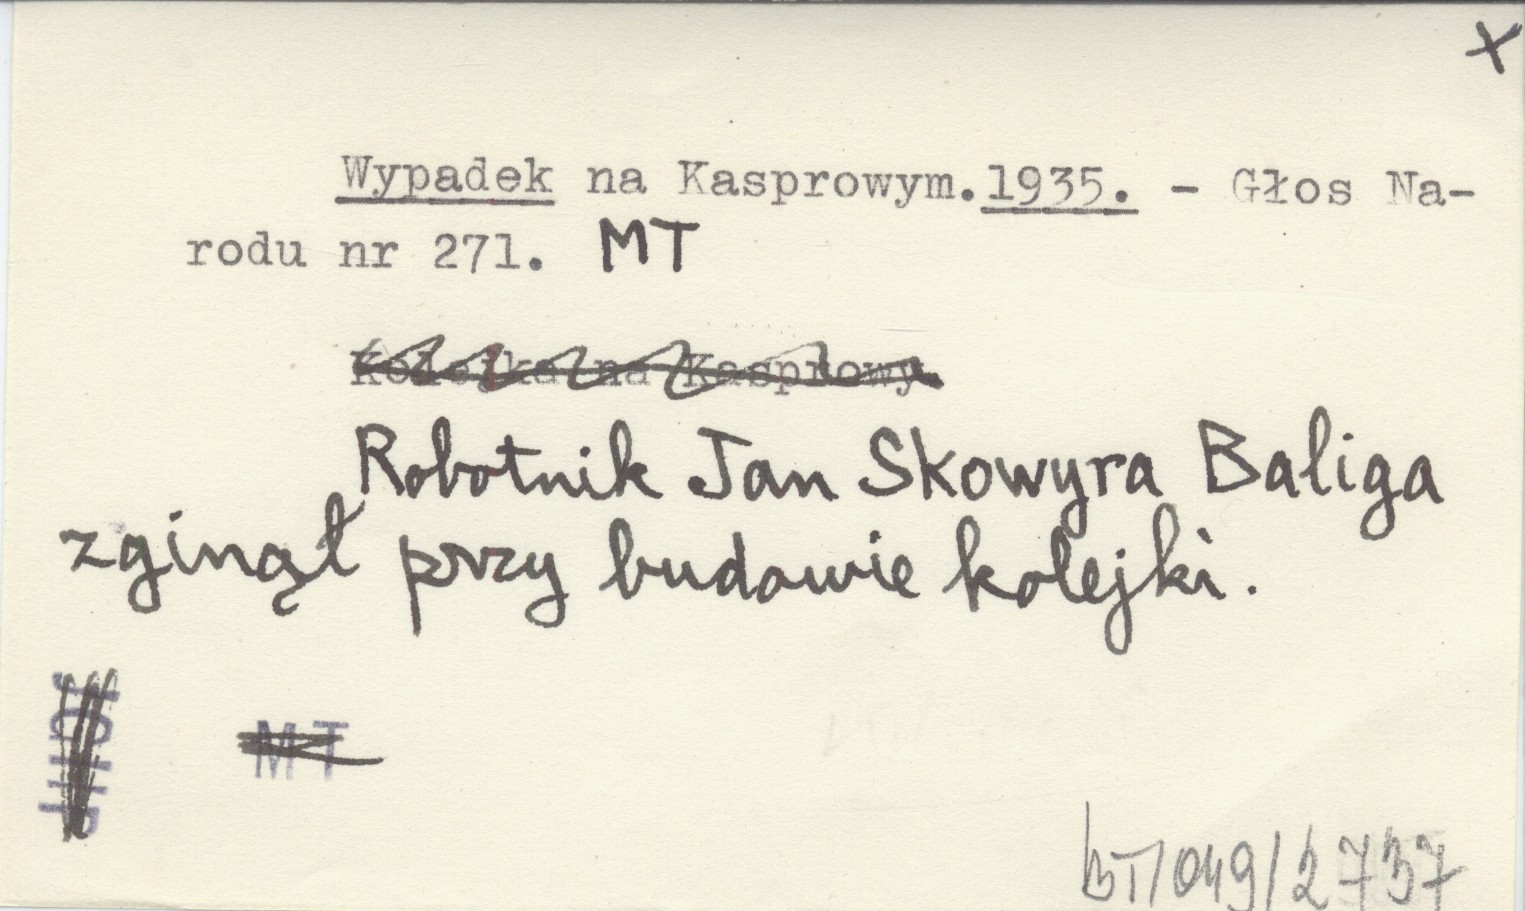 x
Wypadek na Kasprowym. 1935. - Głos Na-
rodu nr 271. MT
Kolejka na Kasprowy.
Robotnik Jan Skowyra Baliga
zginął przy budowie kolejki.
MT
BT/049/2737